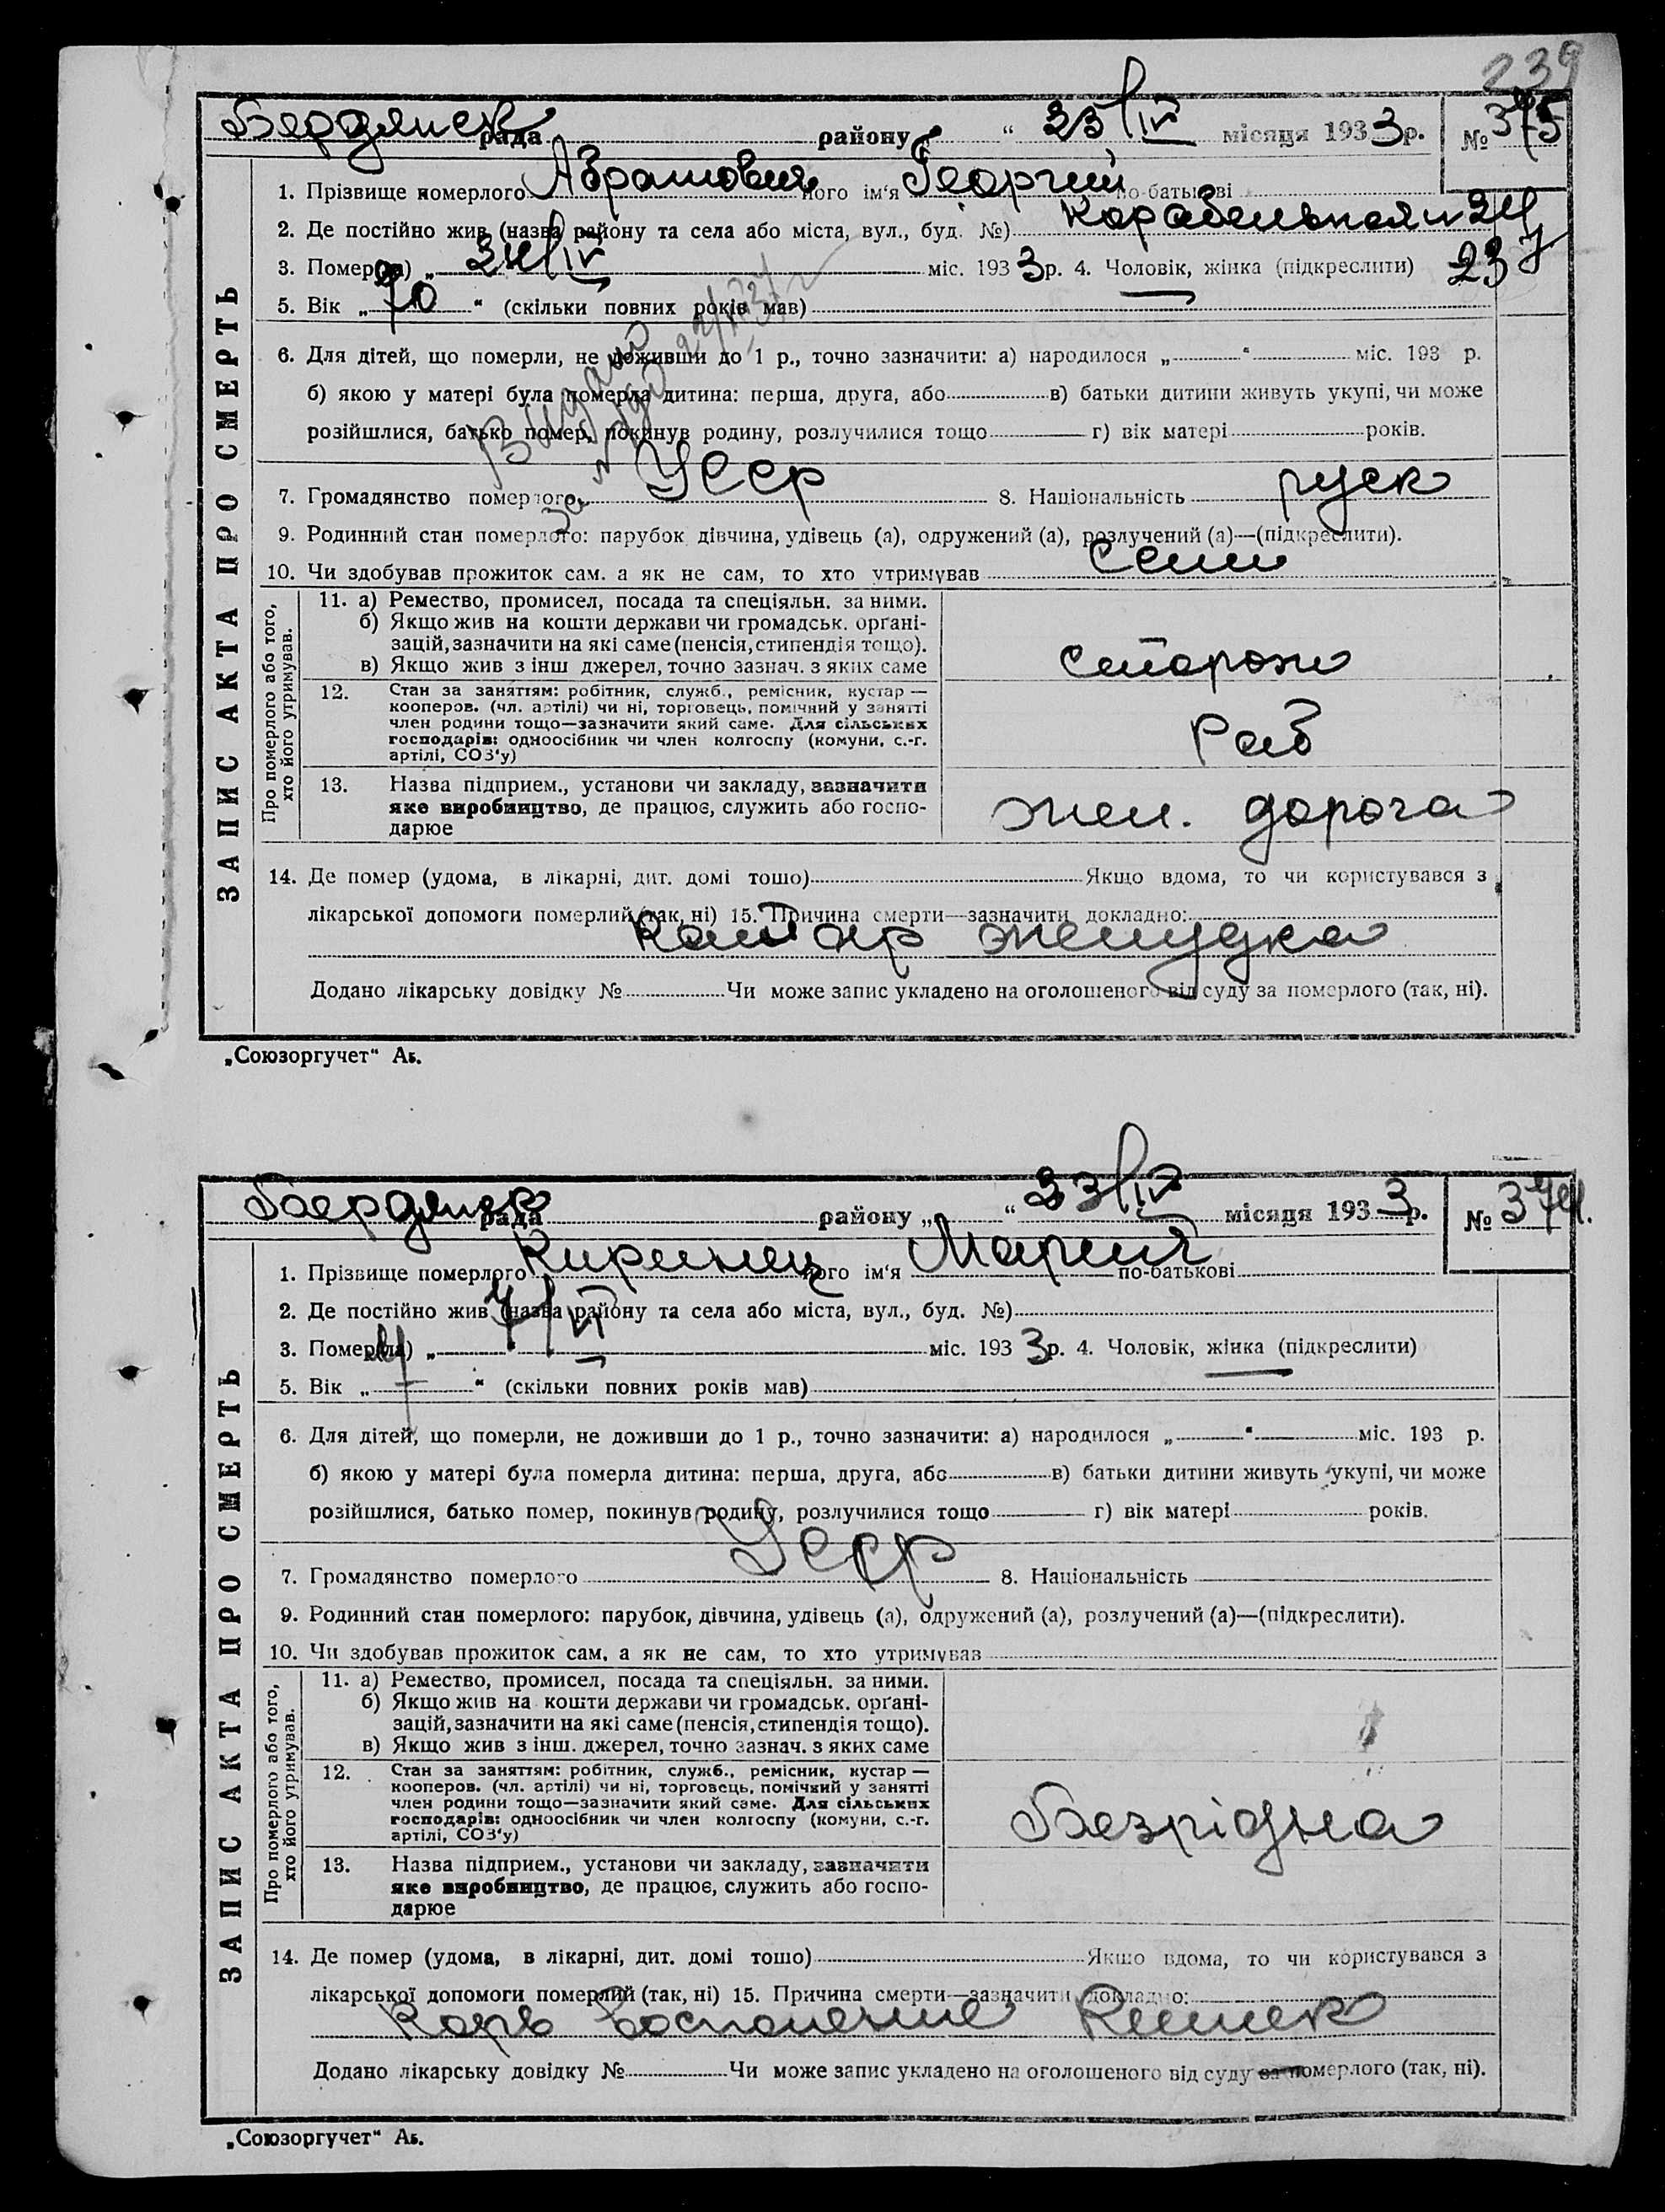 239
Бердянск рада району „ “ 23/IV місяця 1933 р. № 375
ЗАПИС АКТА ПРО СМЕРТЬ
1. Прізвище померлого його ім‘я Георгий по-батькові
2. Де постійно жив (назва району та села або міста, вул., буд. №) Карабельная 24
237
3. Помер(ла) „ міс. 1933 р. 4. Чоловік, жінка (підкреслити)
5. Вік „ 70 “ (скільки повних років мав)
6. Для дітей, що померли, не доживши до 1 р., точно зазначити: а) народилося „ “ міс. 193 р.
б) якою у матері була померла дитина: перша, друга, або в) батьки дитини живуть укупі, чи може
розійшлися, батько помер, покинув родину, розлучилися тощо г) вік матері років.
Видано
за №
7. Громадянство померлого Усср 8. Національність руск
9. Родинний стан померлого: парубок, дівчина, удівець (а), одружений (а), розлучений (а)—(підкреслити).
10. Чи здобував прожиток сам. а як не сам, то хто утримував сам
Про померлого або того, хто його утримував.
11. а) Ремество, промисел, посада та спеціяльн. за ними.
б) Якщо жив на кошти держави чи громадськ. орґані-
зацій, зазначити на які саме (пенсія, стипендія тощо).
в) Якщо жив з інш джерел, точно зазнач. з яких саме
сторож
12. Стан за заняттям: робітник, служб., ремісник, кустар —
кооперов. (чл. артілі) чи ні, торговець, помічний у занятті
член родини тощо—зазначити який саме. Для сільських
господарів: одноосібник чи член колгоспу (комуни, с.-г.
артілі, СОЗ‘у)
Раб
13. Назва підприєм., установи чи закладу, зазначити
яке виробництво, де працює, служить або госпо-
дарює
жел. дорога
14. Де помер (удома, в лікарні, дит. домі тошо) Якщо вдома, то чи користувався з
лікарської допомоги померлий (так, ні) 15. Причина смерти—зазначити докладно:
Катар желудка
Додано лікарську довідку № Чи може запис укладено на оголошеного від суду за померлого (так, ні).
„Союзоргучет“ Аб.
Бердянск рада району „ “ 23/IV місяця 1933 р. № 374.
ЗАПИС АКТА ПРО СМЕРТЬ
1. Прізвище померлого його ім‘я Мария по-батькові
2. Де постійно жив (назва району та села або міста, вул., буд. №)
3. Помер(ла) „ міс. 1933 р. 4. Чоловік, жінка (підкреслити)
5. Вік „ “ (скільки повних років мав)
6. Для дітей, що померли, не доживши до 1 р., точно зазначити: а) народилося „ “ міс. 193 р.
б) якою у матері була померла дитина: перша, друга, або в) батьки дитини живуть укупі, чи може
розійшлися, батько помер, покинув родину, розлучилися тощо г) вік матері років.
7. Громадянство померлого Усср 8. Національність
9. Родинний стан померлого: парубок, дівчина, удівець (а), одружений (а), розлучений (а)—(підкреслити).
10. Чи здобував прожиток сам, а як не сам, то хто утримував
Про померлого або того, хто його утримував.
11. а) Ремество, промисел, посада та спеціяльн. за ними.
б) Якщо жив на кошти держави чи громадськ. орґані-
зацій, зазначити на які саме (пенсія, стипендія тощо).
в) Якщо жив з інш. джерел, точно зазнач. з яких саме
12. Стан за заняттям: робітник, служб., ремісник, кустар —
кооперов. (чл. артілі) чи ні, торговець, помічний у занятті
член родини тощо—зазначити який саме. Для сільських
господарів: одноосібник чи член колгоспу (комуни, с.-г.
артілі, СОЗ‘у)
Безрідна
13. Назва підприєм., установи чи закладу, зазначити
яке виробництво, де працює, служить або госпо-
дарює
14. Де помер (удома, в лікарні, дит. домі тошо) Якшо вдома, то чи користувався з
лікарської допомоги померлий (так, ні) 15. Причина смерти—зазначити докладно:
Корь Воспаление Кишек
Додано лікарську довідку № Чи може запис укладено на оголошеного від суду за померлого (так, ні).
„Союзоргучет“ Аб.